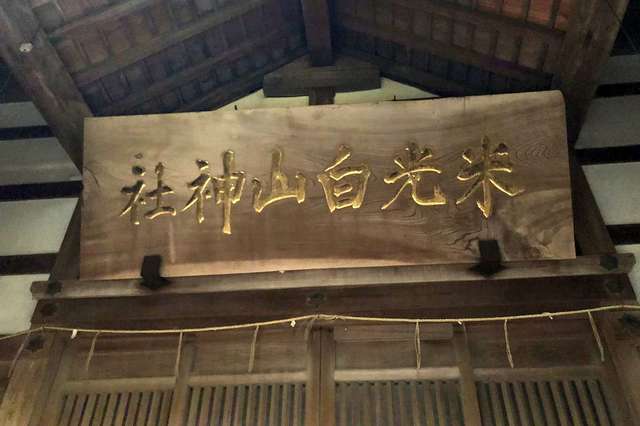 米光白山神社